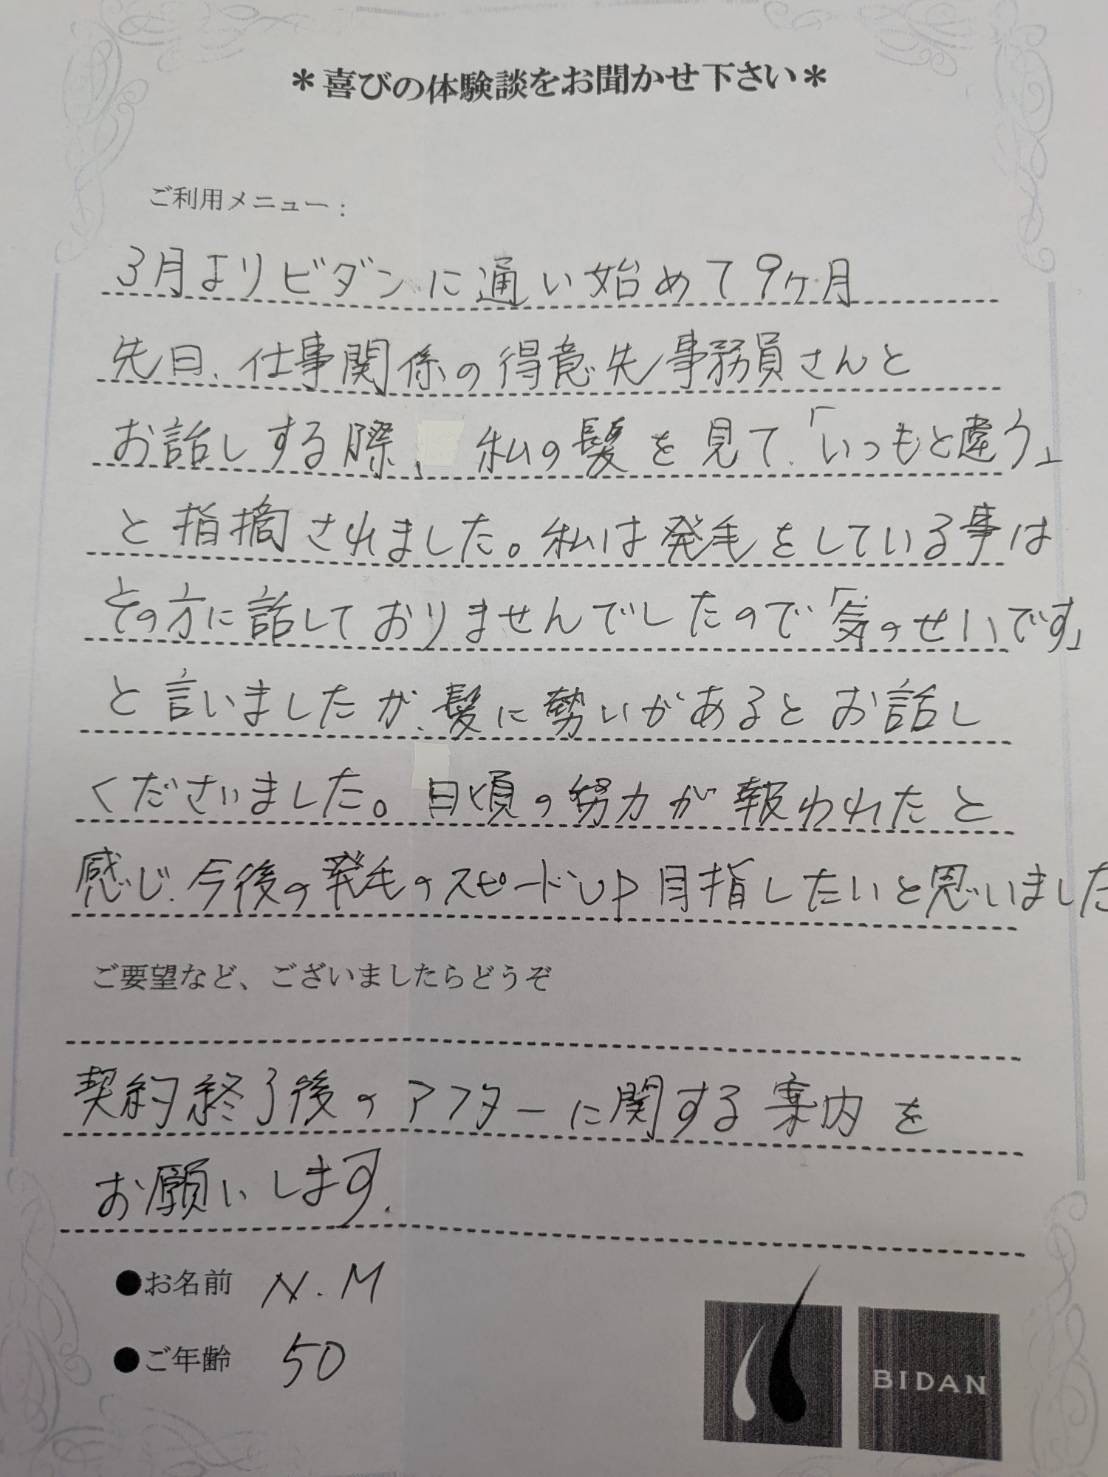 ＊喜びの体験談をお聞かせ下さい＊
ご利用メニュー：
3月よりビダンに通い始めて9ヶ月
先日、仕事関係の得意先事務員さんと
お話しする際、私の髪を見て、「いつもと違う」
と指摘されました。私は発毛をしている事は
その方に話しておりませんでしたので「気のせいです」
と言いましたが、髪に勢いがあるとお話し
くださいました。日頃の努力が報われたと
感じ、今後の発毛のスピードUP目指したいと思いました
ご要望など、ございましたらどうぞ
契約終了後のアフターに関する案内を
お願いします。
●お名前 N.M
●ご年齢 50
BIDAN